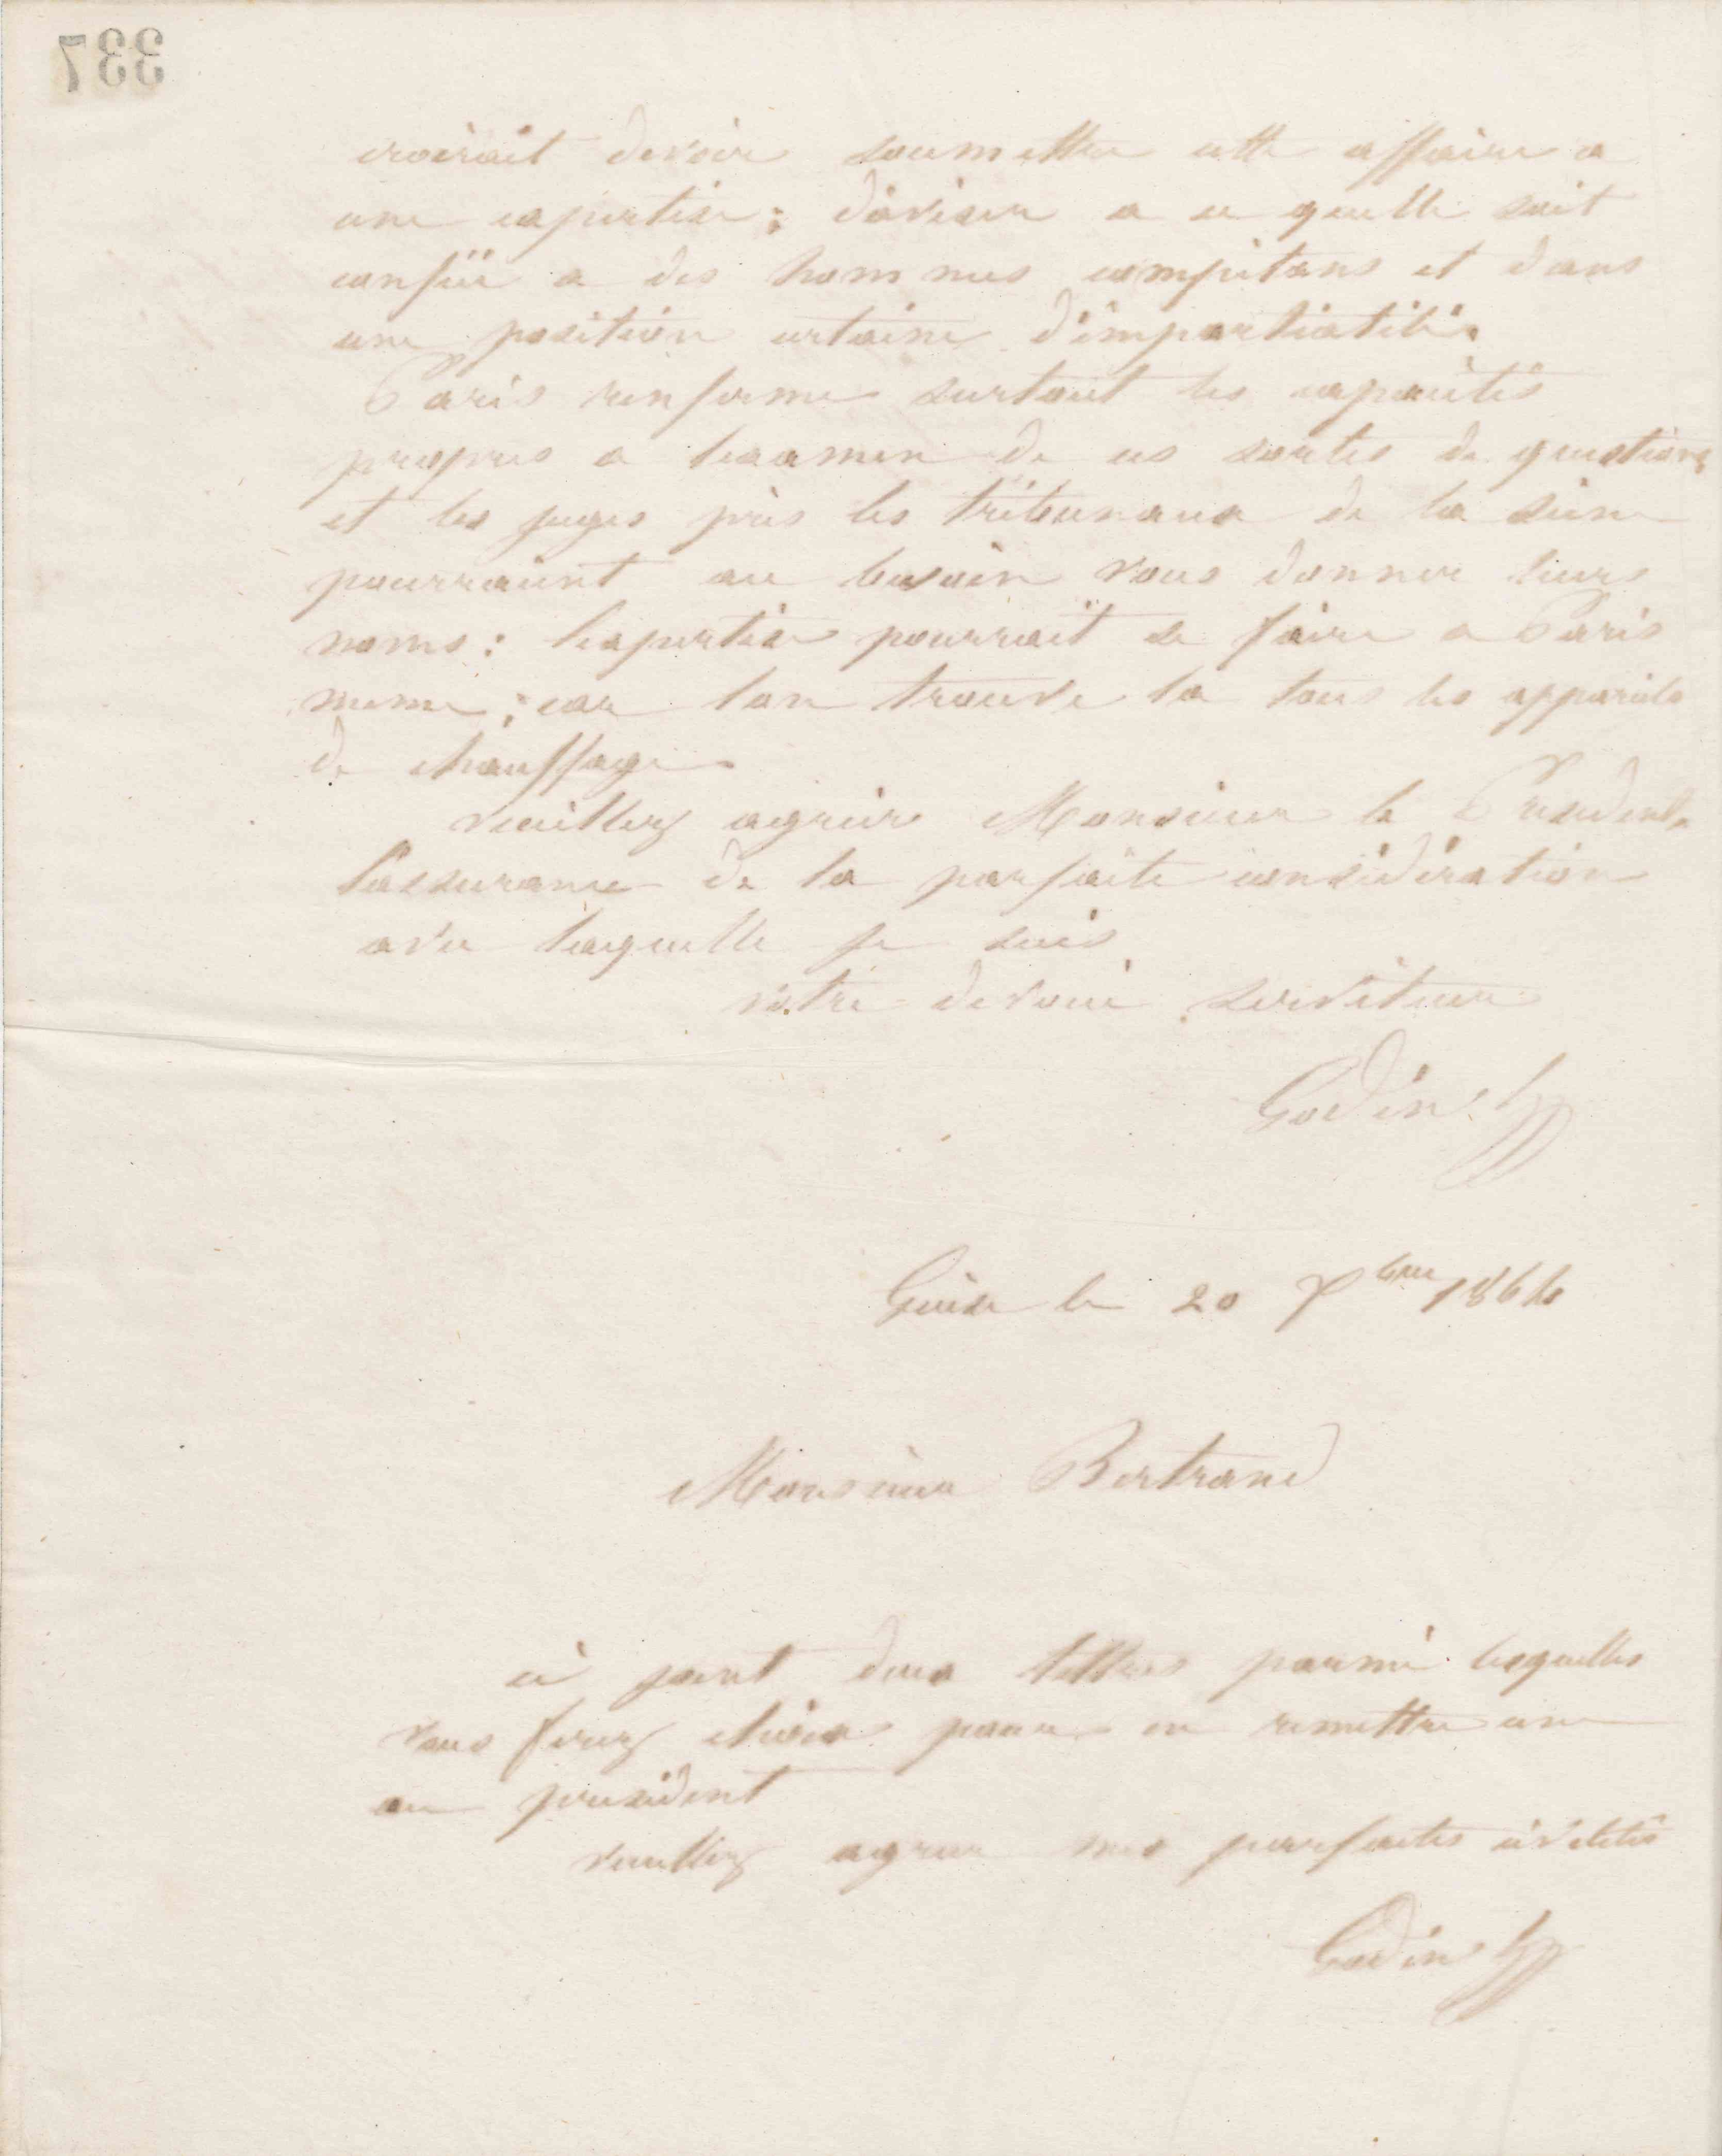 337
croirait devoir soumettre cette affaire a
une expertise ; d'aviser a ce quelle soit
confiée a des hommes compétans et dans
une position certaine d'impartialité.
Paris renferme surtout les capacités
propres a lexamen de ces sortes de questions
et les juges près les tribunaux de la seine
pourraient au besoin vous donner leurs
noms : lexpertise pourrait se faire a Paris
meme ; car lon trouve la tous les appareils
de chauffage
veuillez agréer Monsieur le Président
l'assurance de la parfaite considération
avec laquelle je suis
votre devoué serviteur
Godin
Guise le 20 7bre 1864
Monsieur Bertrand
ci joint deux lettres parmi lesquelles
vous ferez choix pour en remettre une
au president
veuillez agreer mes parfaites civilités
Godin